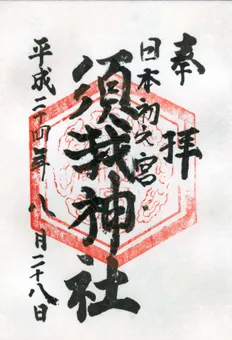 奉拝
日本初之宮
須我神社
平成二十四年 八月二十八日